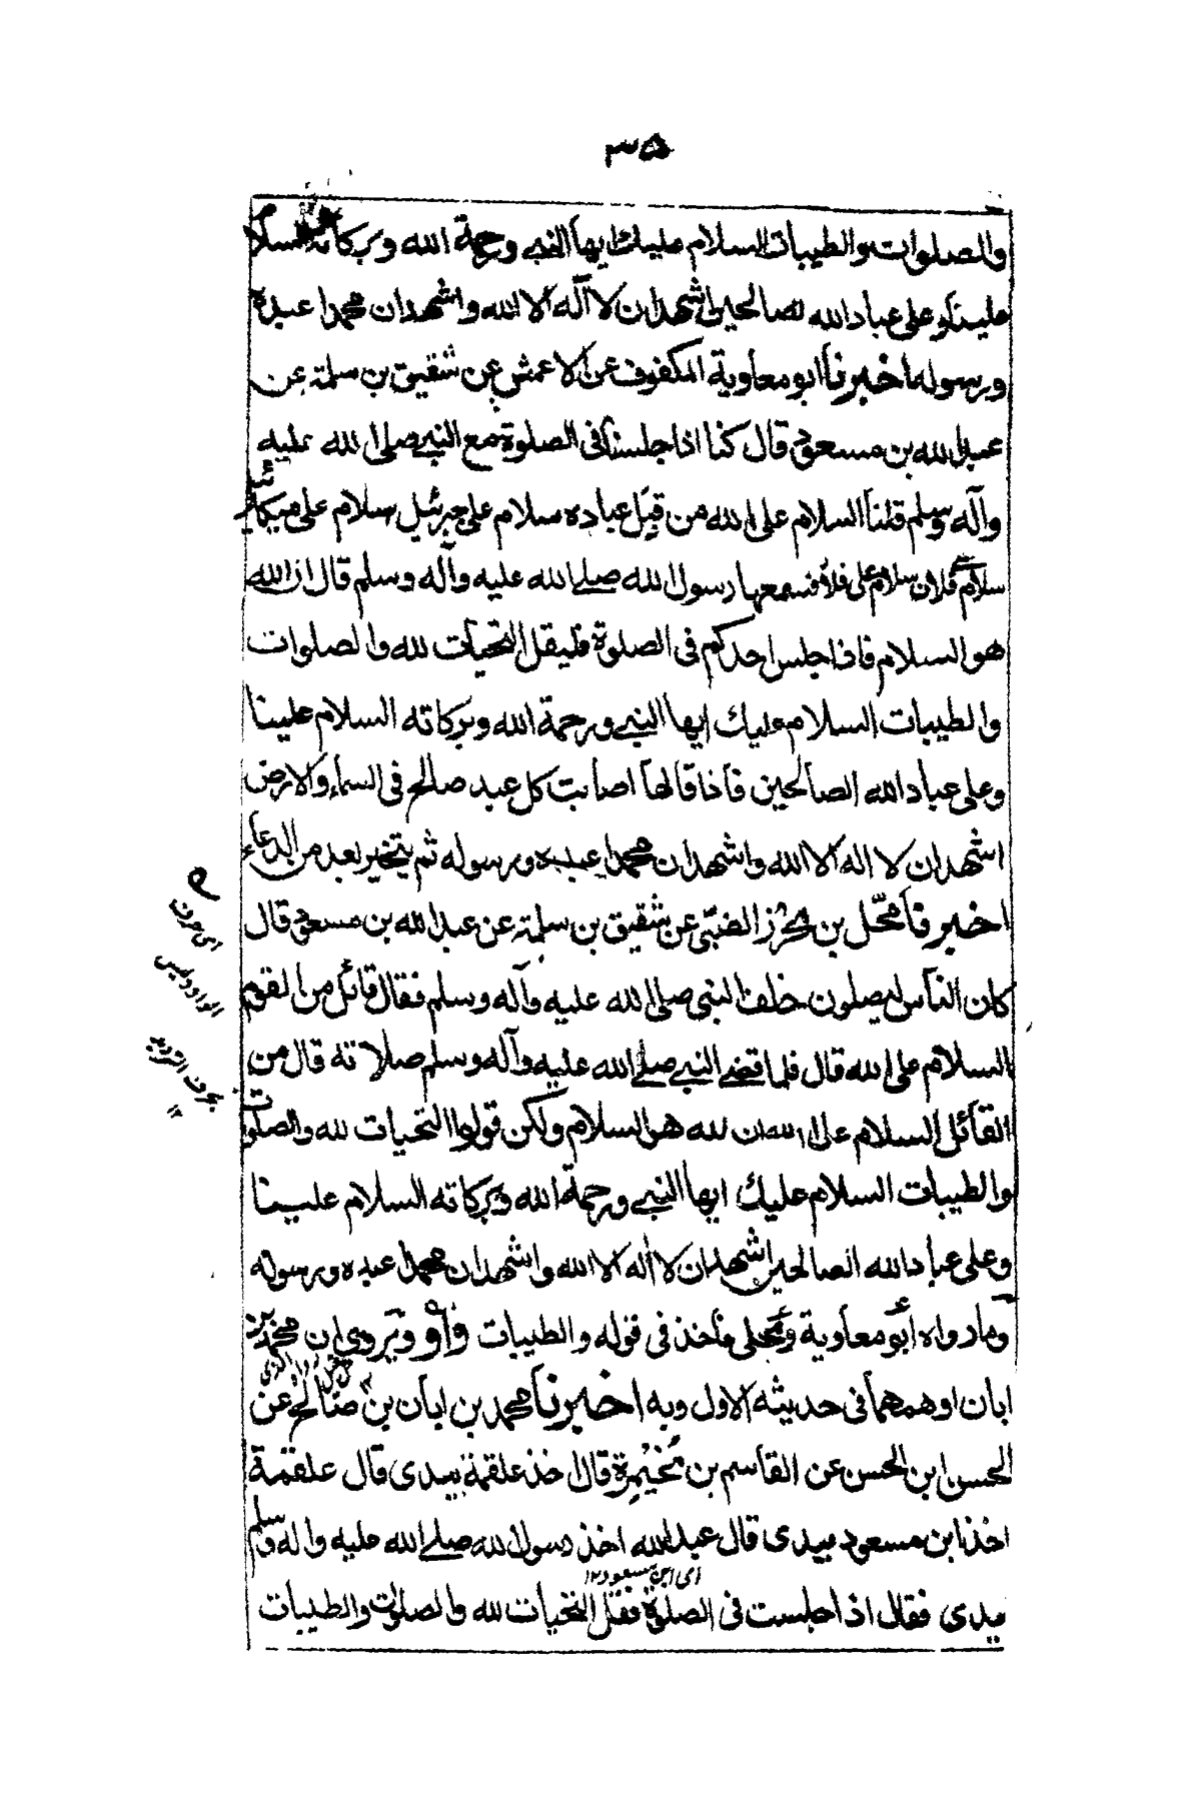 ٣٥
والصلوات والطيبات السلام عليك ايها النبي ورحمة الله وبركاته السلام
علينا وعلى عباد الله الصالحين اشهد ان لا اله الا الله واشهد ان محمدا عبده
ورسوله اخبرنا ابو معاوية المكفوف عن الاعمش عن شقيق بن سلمة عن
عبد الله بن مسعود قال كنا اذا جلسنا فى الصلوة مع النبي صلى الله عليه
وآله وسلم قلنا السلام على الله من قبل عباده سلام على جبرئيل سلام على ميكائيل
سلام على فلان سلام على فلان فسمعها رسول الله صلے الله عليه وآله وسلم قال ان الله
هو السلام فاذا جلس احدكم فى الصلوة فليقل التحيات لله والصلوات
والطيبات السلام عليك ايها النبي ورحمة الله وبركاته السلام علينا
وعلى عباد الله الصالحين فاذا قالها اصابت كل عبد صالح فى السماء والارض
اشهد ان لا اله الا الله واشهد ان محمدا عبده ورسوله ثم يتخير بعد من الدعاء
اخبرنا محّل بن محرز الضبّى عن شقيق بن سلمة عن عبد الله بن مسعود قال
كان الناس يصلون خلف النبى صلى الله عليه وآله وسلم فقال قائل من القوم
السلام على الله قال فلما قضے النبي صلے الله عليه وآله وسلم صلاته قال من
القائل السلام على الله ان الله هو السلام ولكن قولوا التحيات لله والصلوات
والطيبات السلام عليك ايها النبي ورحمة الله وبركاته السلام علينا
وعلى عباد الله الصالحين اشهد ان لا اله الا الله واشهد ان محمدا عبده ورسوله
وما رواه ابو معاوية ومحل فأخذ فى قوله والطيبات واو ويروى ان محمد بن
ابان اوهمهما فى حديثه الاول وبه اخبرنا محمد بن ابان بن صالح عن
الحسن ابن الحسن عن القاسم بن مُخَيْمِرة قال اخذ علقمة بيدى قال علقمة
اخذ ابن مسعود بيدى قال عبد الله اخذ رسول الله صلے الله عليه واله وسلم
اى ابن مسعود ١٢
بيدى فقال اذا جلست فى الصلوة فقل التحيات لله والصلوات والطيبات
اى حرف
الواو وليس
بحرف الترديد
١٢